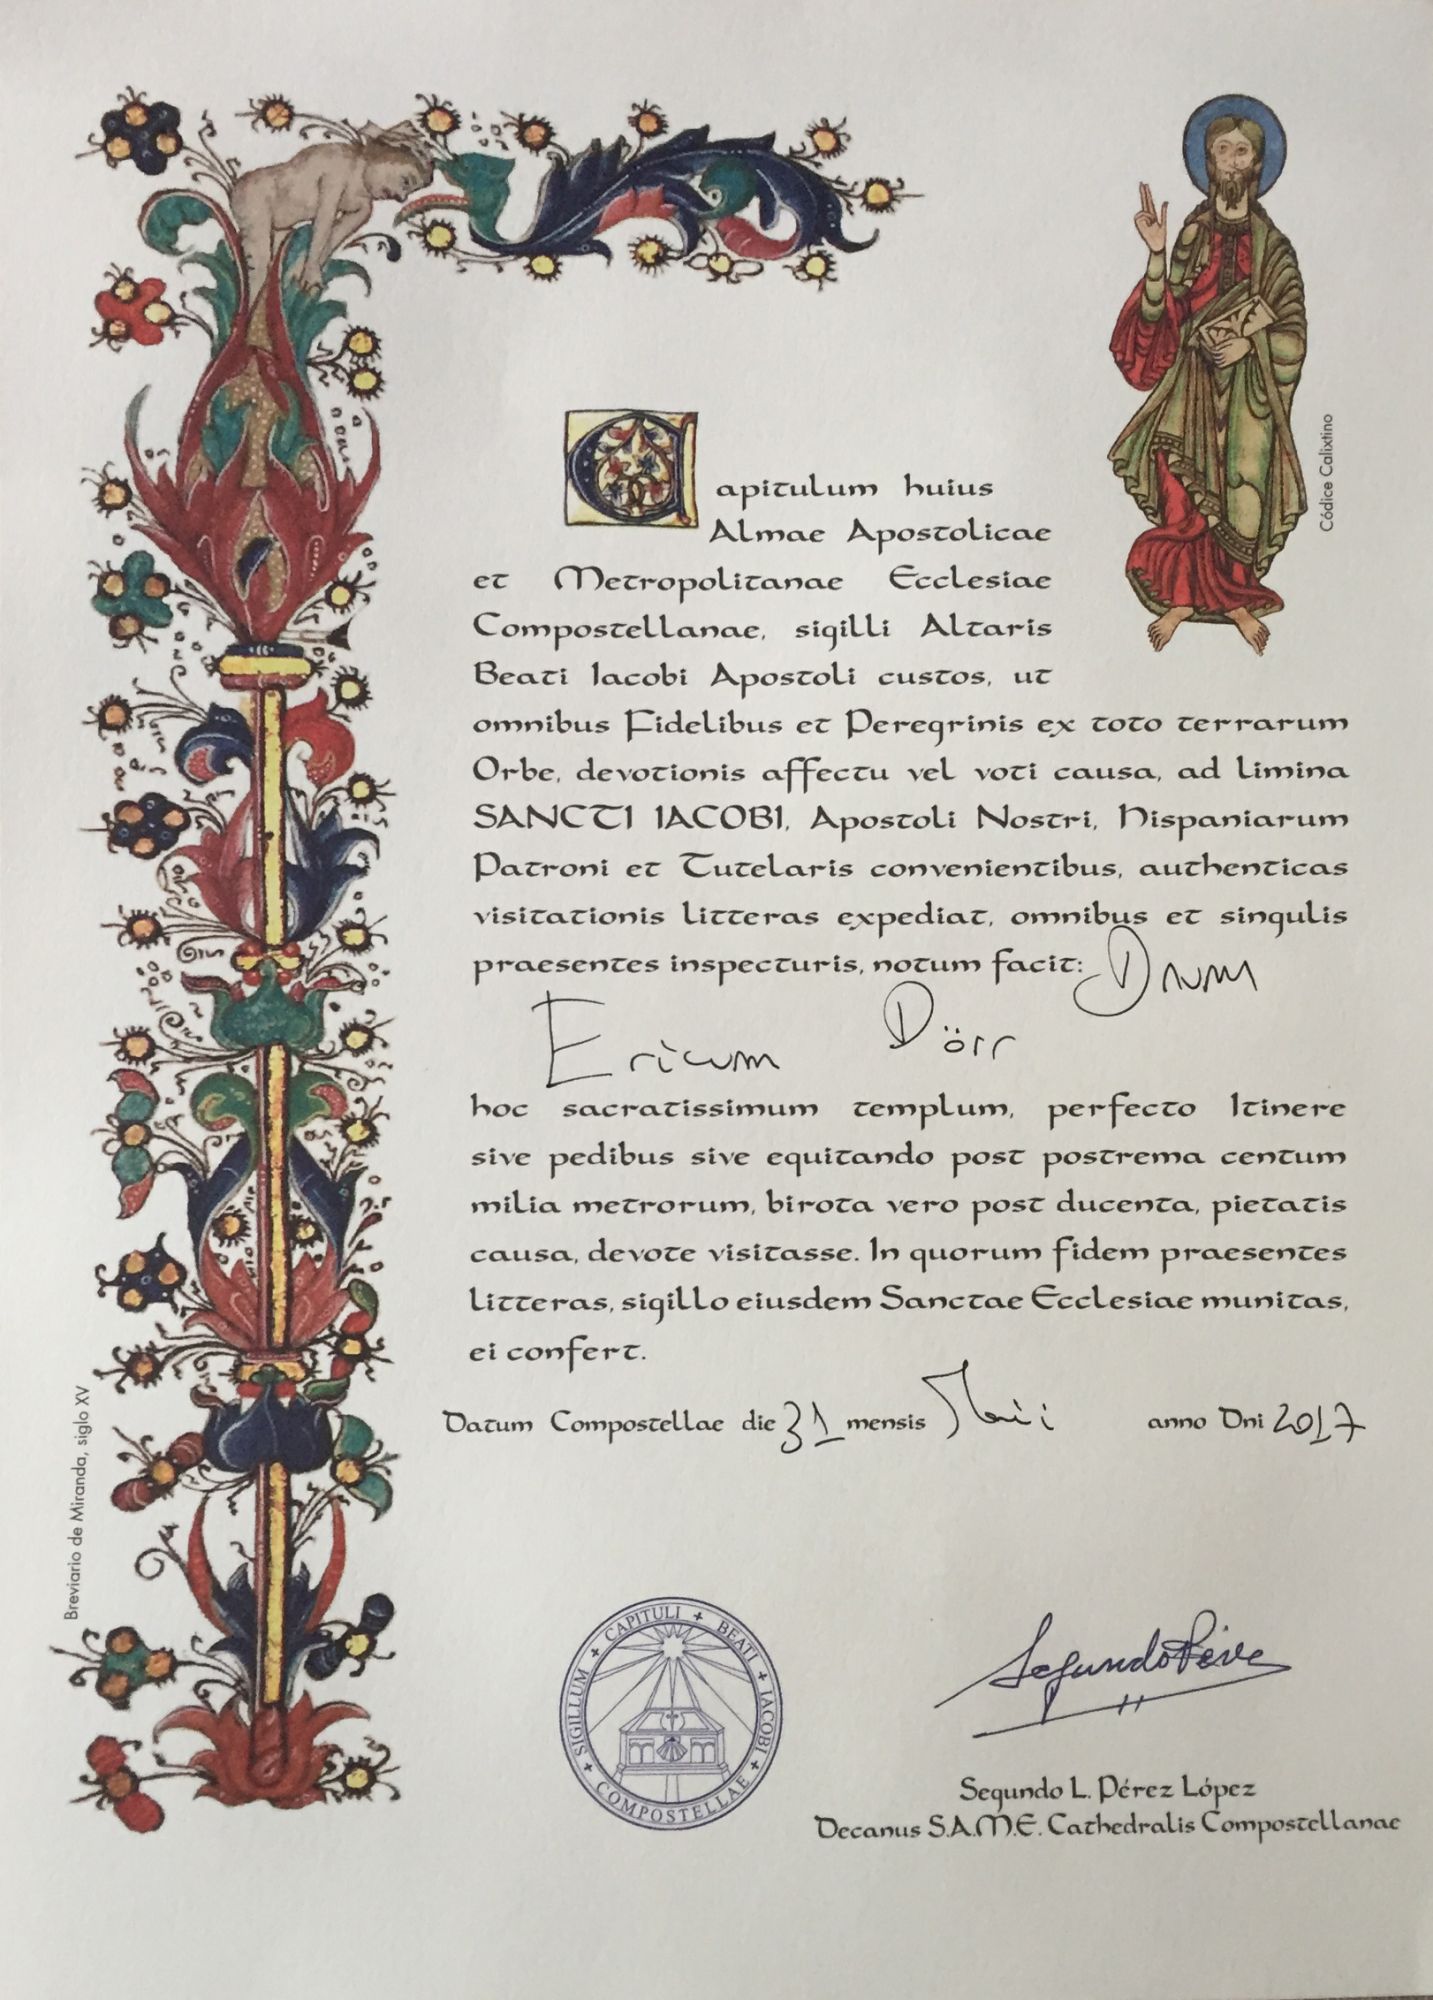 Capitulum huius
Almae Apostolicae
et Metropolitanae Ecclesiae
Compostellanae, sigilli Altaris
Beati Iacobi Apostoli custos, ut
omnibus Fidelibus et Peregrinis ex toto terrarum
Orbe, devotionis affectu vel voti causa, ad limina
SANCTI IACOBI, Apostoli Nostri, Hispaniarum
Patroni et Tutelaris convenientibus, authenticas
visitationis litteras expediat, omnibus et singulis
praesentes inspecturis, notum facit: Dnum
Ericum Dörr
hoc sacratissimum templum, perfecto Itinere
sive pedibus sive equitando post postrema centum
milia metrorum, birota vero post ducenta, pietatis
causa, devote visitasse. In quorum fidem praesentes
litteras, sigillo eiusdem Sanctae Ecclesiae munitas,
ei confert.
Datum Compostellae die 31 mensis Maii anno Dni 2017
SIGILLUM + CAPITULI + BEATI + IACOBI + COMPOSTELLAE +
Segundo Pérez
Segundo L. Pérez López
Decanus S.A.M.E. Cathedralis Compostellanae
Códice Calixtino
Breviario de Miranda, siglo XV